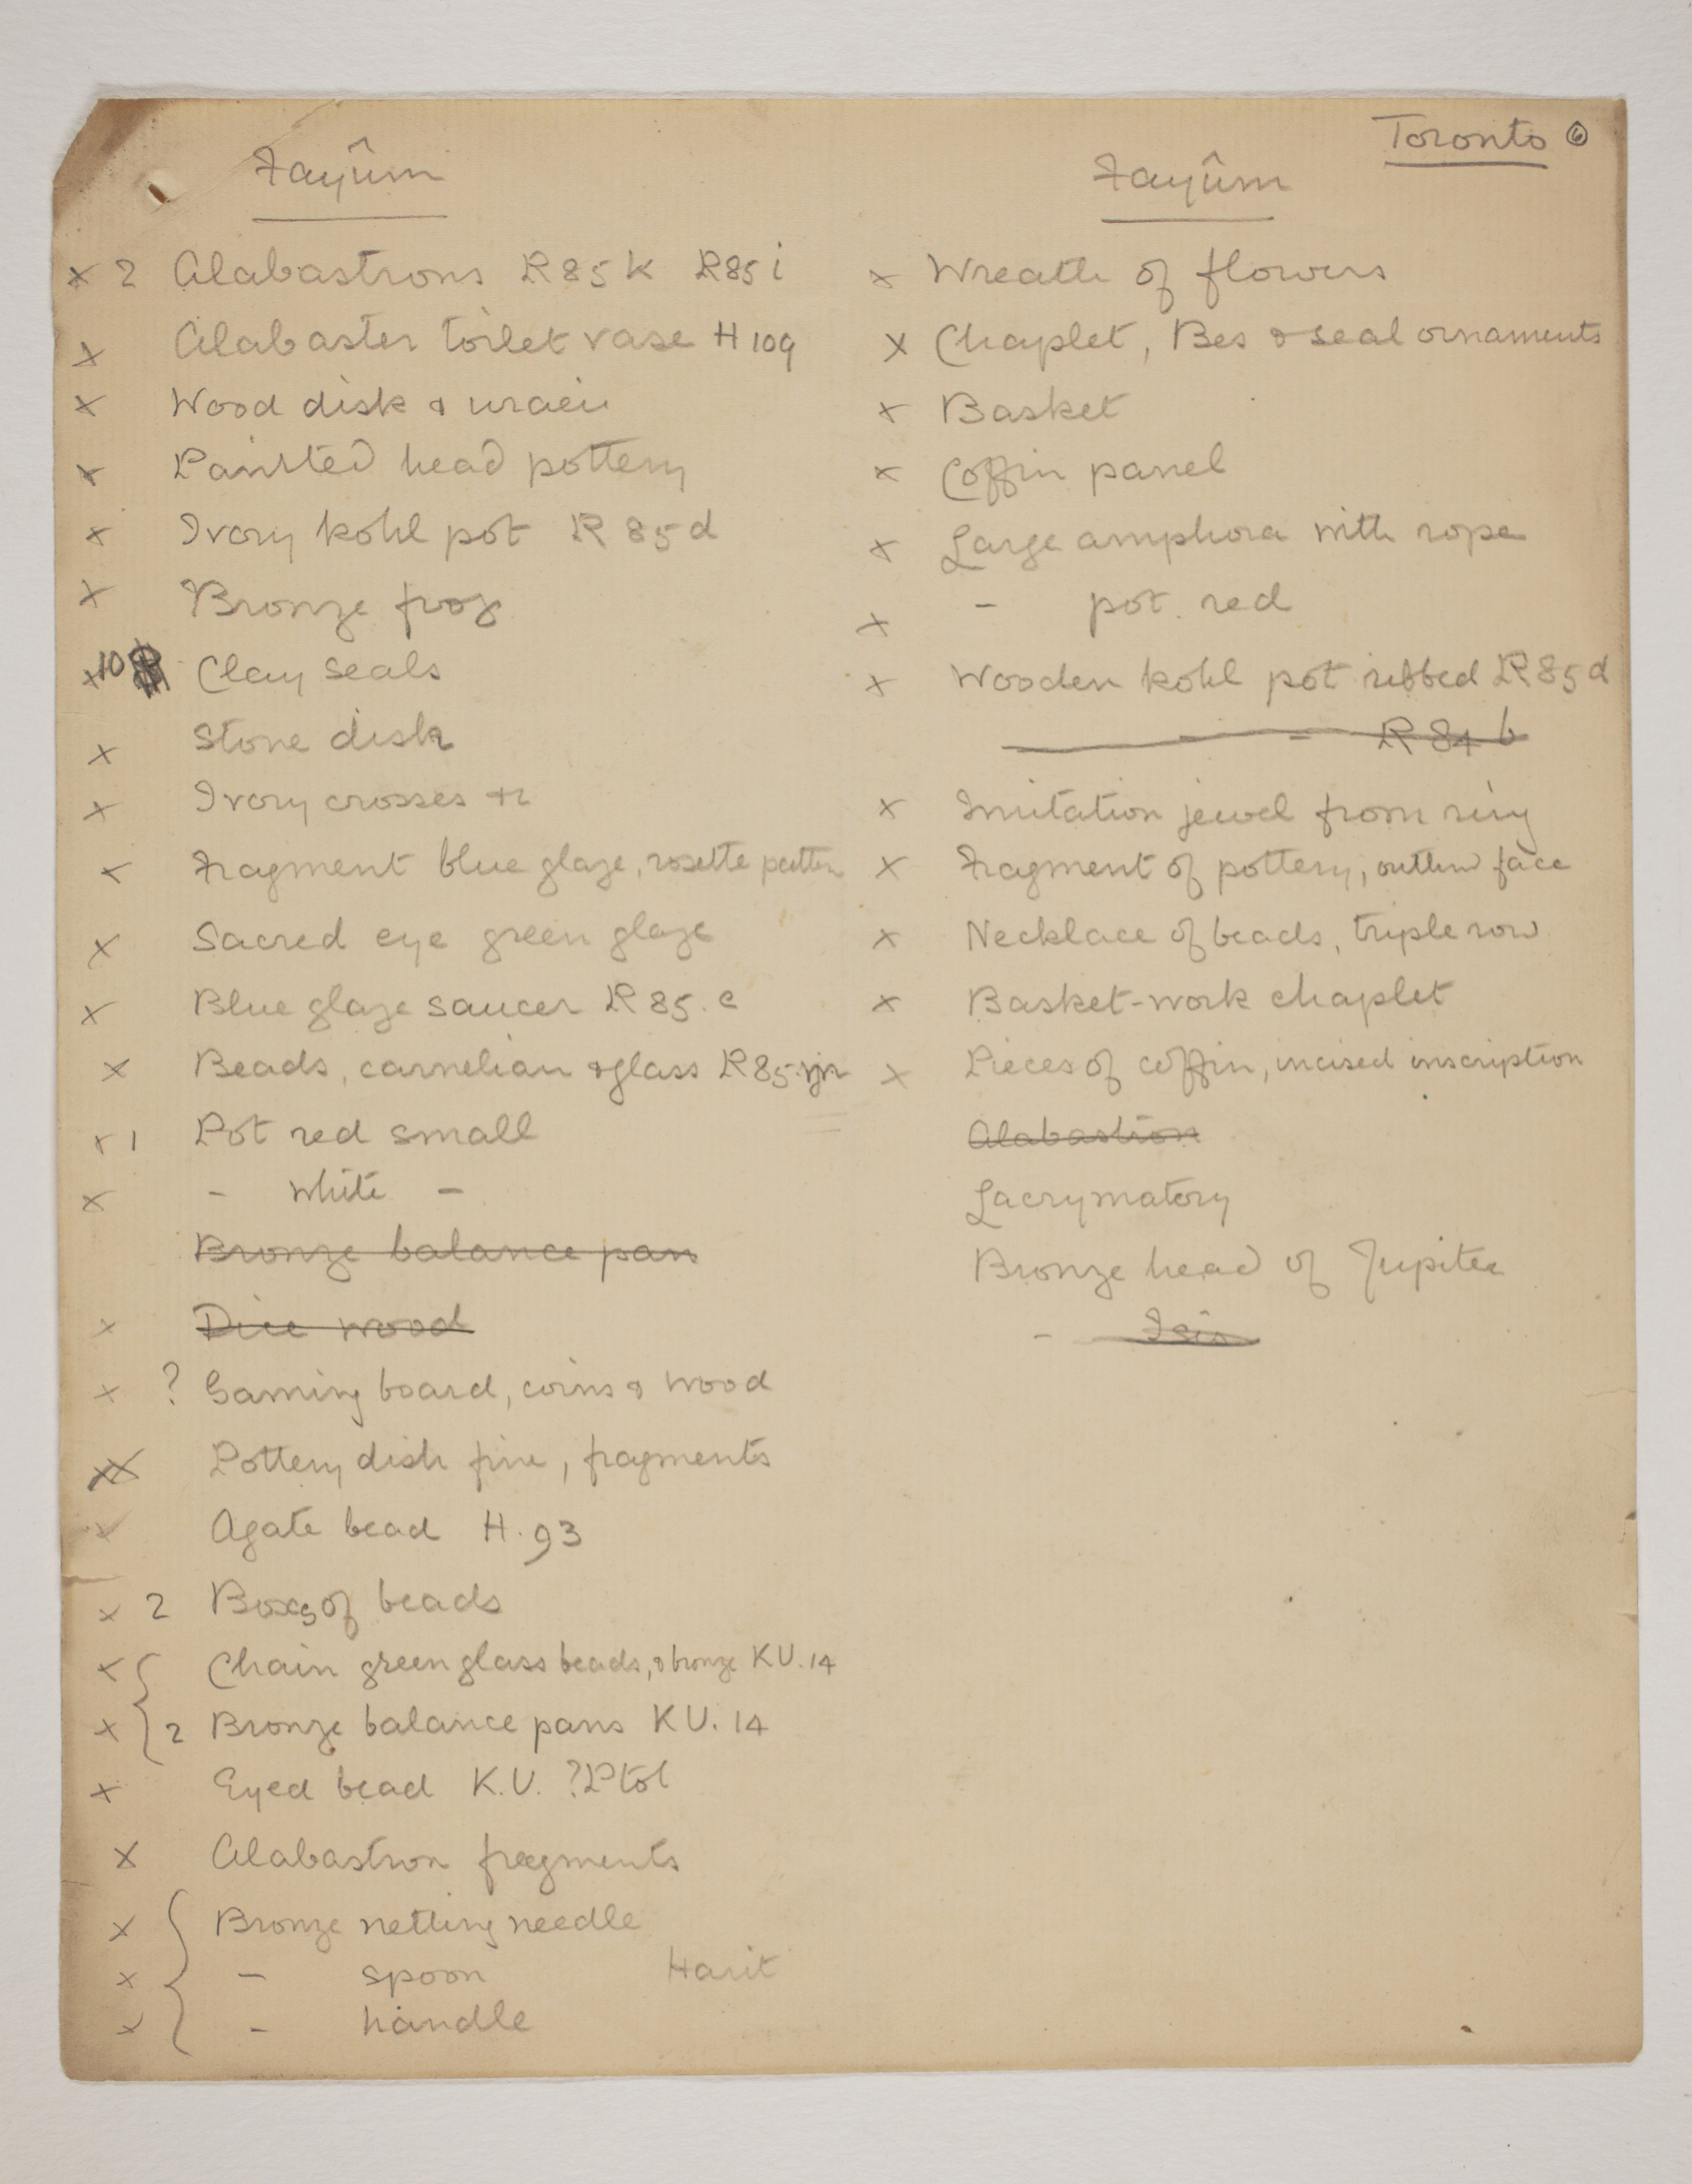 Toronto ⑥
Fayûm
x 2 Alabastrons R85K R85i
x Alabaster toilet vase H109
x Wood disk & uraei
x Painted head pottery
x Ivory kohl pot R85d
x Bronze frog
x 10 Clay seals
x Stone disk
x Ivory crosses &c
x Fragment blue glaze, rosette pattern
x Sacred eye green glaze
x Blue glaze saucer R85.c
x Beads, carnelian & glass R85
x 1 Pot red small
x - white -
Bronze balance pan
x Dice wood
x ? Gaming board, coins & wood
x Pottery dish fine, fragments
x Agate bead H.93
x 2 Boxes of beads
x Chain green glass beads, & bronze KU.14
x 2 Bronze balance pans KU.14
x Eyed bead K.U. ?Ptol
x Alabastron fragments
x Bronze netting needle
x - spoon Harit
x - handle
Fayûm
x Wreath of flowers
x Chaplet, Bes & seal ornaments
x Basket
x Coffin panel
x Large amphora with rope
x - pot. red
x Wooden kohl pot ribbed R85d
- R84b
x Imitation jewel from ring
x Fragment of pottery, outline face
x Necklace of beads, triple row
x Basket-work chaplet
x Pieces of coffin, incised inscription
Alabastron
Lacrymatory
Bronze head of Jupiter
- Isis